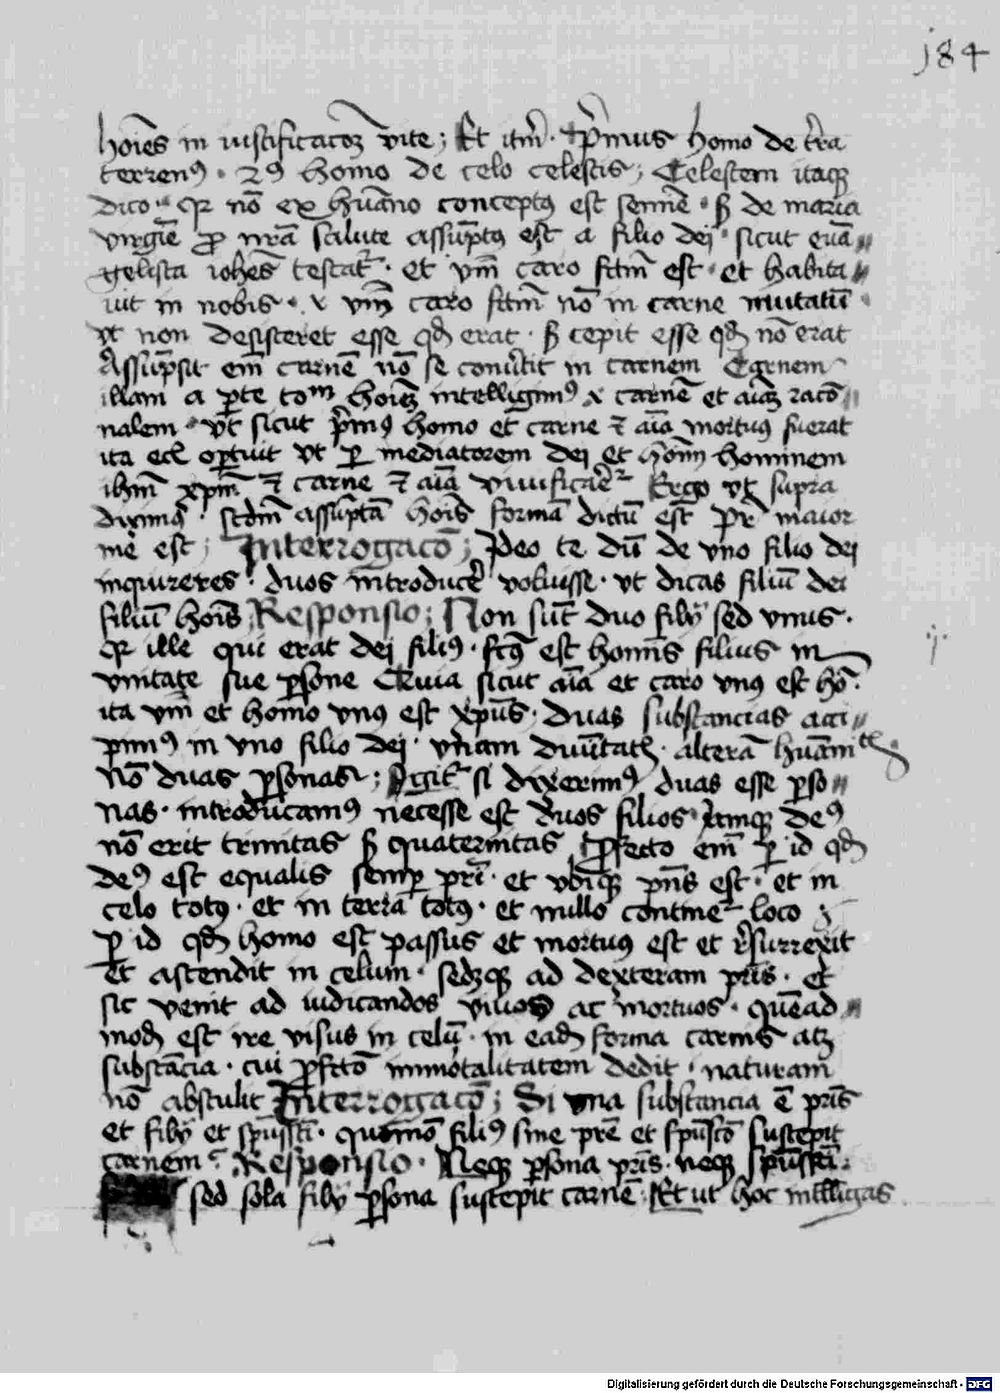 184
hoīes in iustificacōꝫ vite; Et itm̄. Pͥmus homo de tr̄ra
terrenꝰ. 2ꝰ homo de celo celestis; Celestem itaqꝫ
dico qꝛ nō ex hūano conceptꝰ est semīe. sꝫ de maria
virgīe ꝓ nr̄a salute assūptꝰ est a filio dei. sicut euā
gelista ioħes testatᷣ. et vm̄ caro fctm̄ est. et habita
uit in nobis. vm̄ caro fctm̄ nō in carne mutatū
vt non desisteret esse qđ erat. sꝫ cepit esse qđ nō erat
Assūpsit em̄ carnē nō se conūtit in carnem Carnem
illam a ꝑte totm̄ hoīeꝫ intelligimꝰ carnē et aīaꝫ racō
nalem. vt sicut pͥmꝰ homo et carne ⁊ aīa mortuꝰ fuerat
ita ecī oꝑtuit vt ꝑ mediatorem dei et hoīm hominem
ihm̄ xpm̄ ⁊ carne ⁊ aīa viuificarēᷣ Ergo vt supra
diximꝰ. scdm̄ assūptā hoīs formā dictū est Pr̄ maior
me est; Interrogacō; Ideo te dū de vno filio dei
inquireres. duos introducēꝰ voluisse. vt dicas filiū dei
filiū hoīs Responsio; Non sūt duo filij sed vnus.
qꝛ ille qui erat dei filiꝰ. fctꝰ est homīs filius in
vnitate sue ꝑsone Quia sicut aīa et caro vnꝰ est hō.
ita vm̄ et homo vnꝰ est xp̄us. duas substancias acci
pimꝰ in vno filio dei. vnam diuītatꝭ. alterā hūanitꝭ
nō duas ꝑsonas; Igitᷣ si dixerimꝰ duas esse ꝑso
nas. introducamꝰ necesse est duos filios deꝰ
nō erit trinitas sꝫ quaternitas Ꝓfecto em̄ ꝑ id qđ
deꝰ est equalis semꝑ pr̄i. et vbiqꝫ pn̄s est. et in
celo totꝰ. et in terra totꝰ. et nullo contineᷣ loco;
ꝑ id qđ homo est passus et mortuꝰ est et rͤsurrexit
et ascendit in celum. sedꝫqꝫ ad dexteram pr̄is. et
sic venit ad iudicandos viuos ac mortuos. quēad
mođ est ire visus in celū. in eađ forma carnis atꝫ
substācia. cui ꝓfctō immōtalitatem dedit. naturam
nō abstulit Interrogacō; Si vna substancia ē pr̄is
et filij et sp̄ussctī. quomō filiꝰ sine pr̄e et sp̄uscō suscepit
carnem. Responsio. Neqꝫ ꝑsona pr̄is. neqꝫ sp̄ussctī.
sed sola filij ꝑsona suscepit carnē. Et ut hoc intelligas
j.
Digitalisierung gefördert durch die Deutsche Forschungsgemeinschaft - DFG